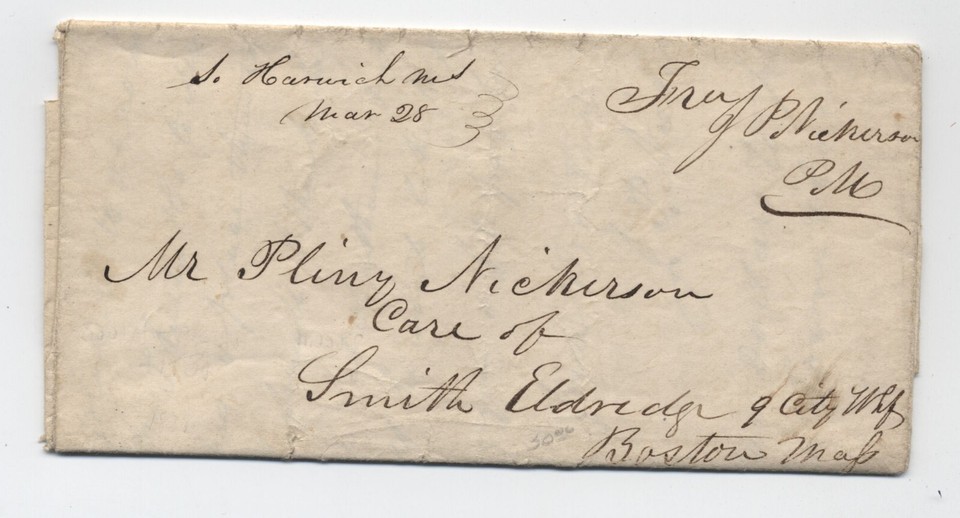 So. Harwich Ms
Mar 28
Free
P Nickerson
PM
Mr Pliny Nickerson
Care of
Smith Eldredge 9 City Whf
Boston Mass